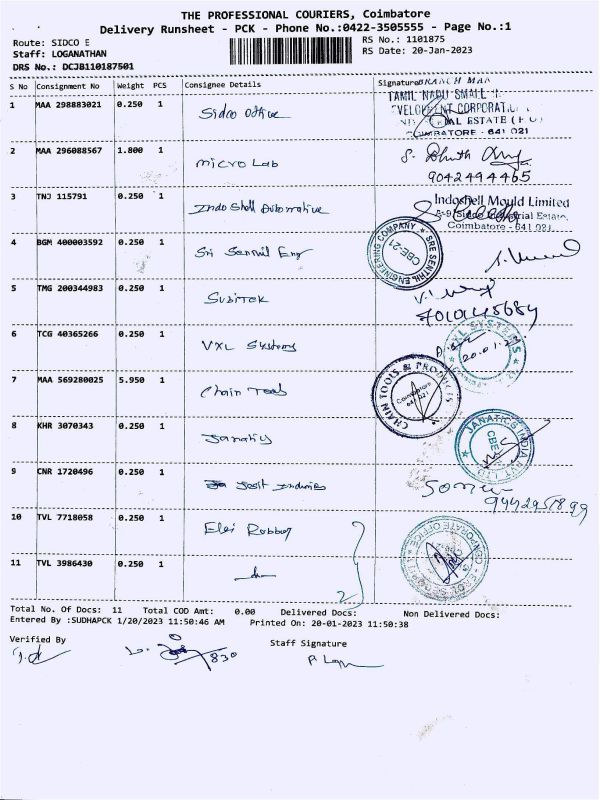 THE PROFESSIONAL COURIERS, Coimbatore
Delivery Runsheet - PCK - Phone No.:0422-3505555 - Page No.:1
Route: SIDCO E RS No.: 1101875
Staff: LOGANATHAN RS Date: 20-Jan-2023
DRS No.: DCJB110187501
S No Consignment No Weight PCS Consignee Details Signature
BRANCH MAN
TAMIL NADU SMALL
1 MAA 298883021 0.250 1 Sidco Office
CORPORAT
ESTATE
COIMBATORE - 641 021
2 MAA 296088567 1.800 1 Micro Lab
9042494465
3 TNJ 115791 0.250 1 Indo Shell Automotive
Indoshell Mould Limited
Sidco Industrial Estate,
Coimbatore - 641 021.
4 BGM 400003592 0.250 1 Sri Senthil Eng
SRE SENTHIL ENGINEERING COMPANY
CBE-21
5 TMG 200344983 0.250 1 Subitek
7010145684
6 TCG 40365266 0.250 1 VXL Systems
VXL SYSTEMS
20.01.2
7 MAA 569280025 5.950 1 Chain Tools
CHAIN TOOLS & PRODUCTS
Coimbatore
641 021
8 KHR 3070343 0.250 1 Janatics
JANATICS INDIA PVT LTD
CBE
9 CNR 1720496 0.250 1
9442951899
10 TVL 7718058 0.250 1
CORPORATE OFFICE
11 TVL 3986430 0.250 1
2
Total No. Of Docs: 11 Total COD Amt: 0.00 Delivered Docs: Non Delivered Docs:
Entered By :SUDHAPCK 1/20/2023 11:50:46 AM Printed On: 20-01-2023 11:50:38
Verified By Staff Signature
830